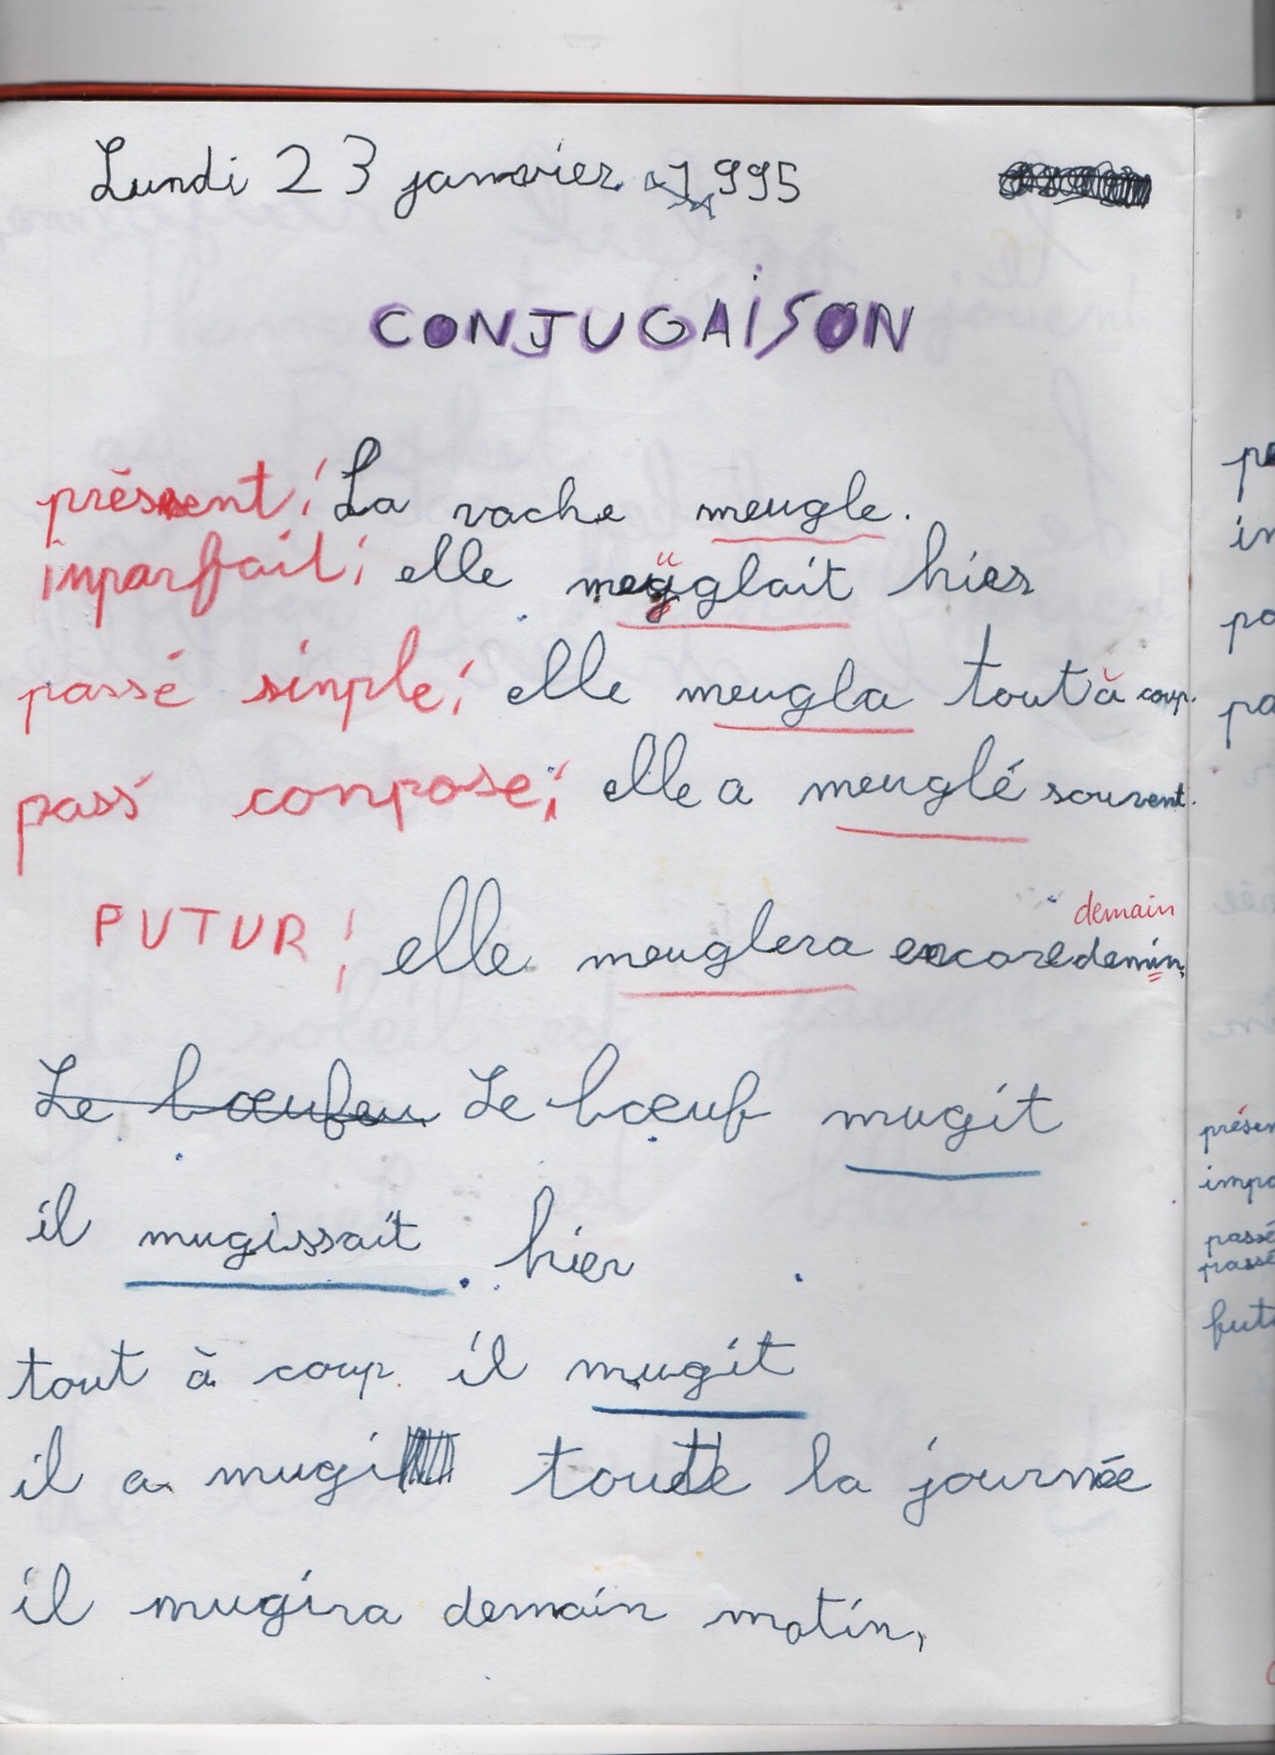 Lundi 23 janvier 1995
CONJUGAISON
présent : La vache meugle.
imparfait : elle meuglait hier
passé simple : elle meugla tout à coup.
pass conposé : elle a meuglé souvent.
demain
FUTUR : elle meuglera encore demin.
Le bœufeu Le bœuf mugit
il mugissait hier
tout à coup il mugit
il a mugi toute la journée
il mugira demain matin.
présen
impa
passé
passé
futu